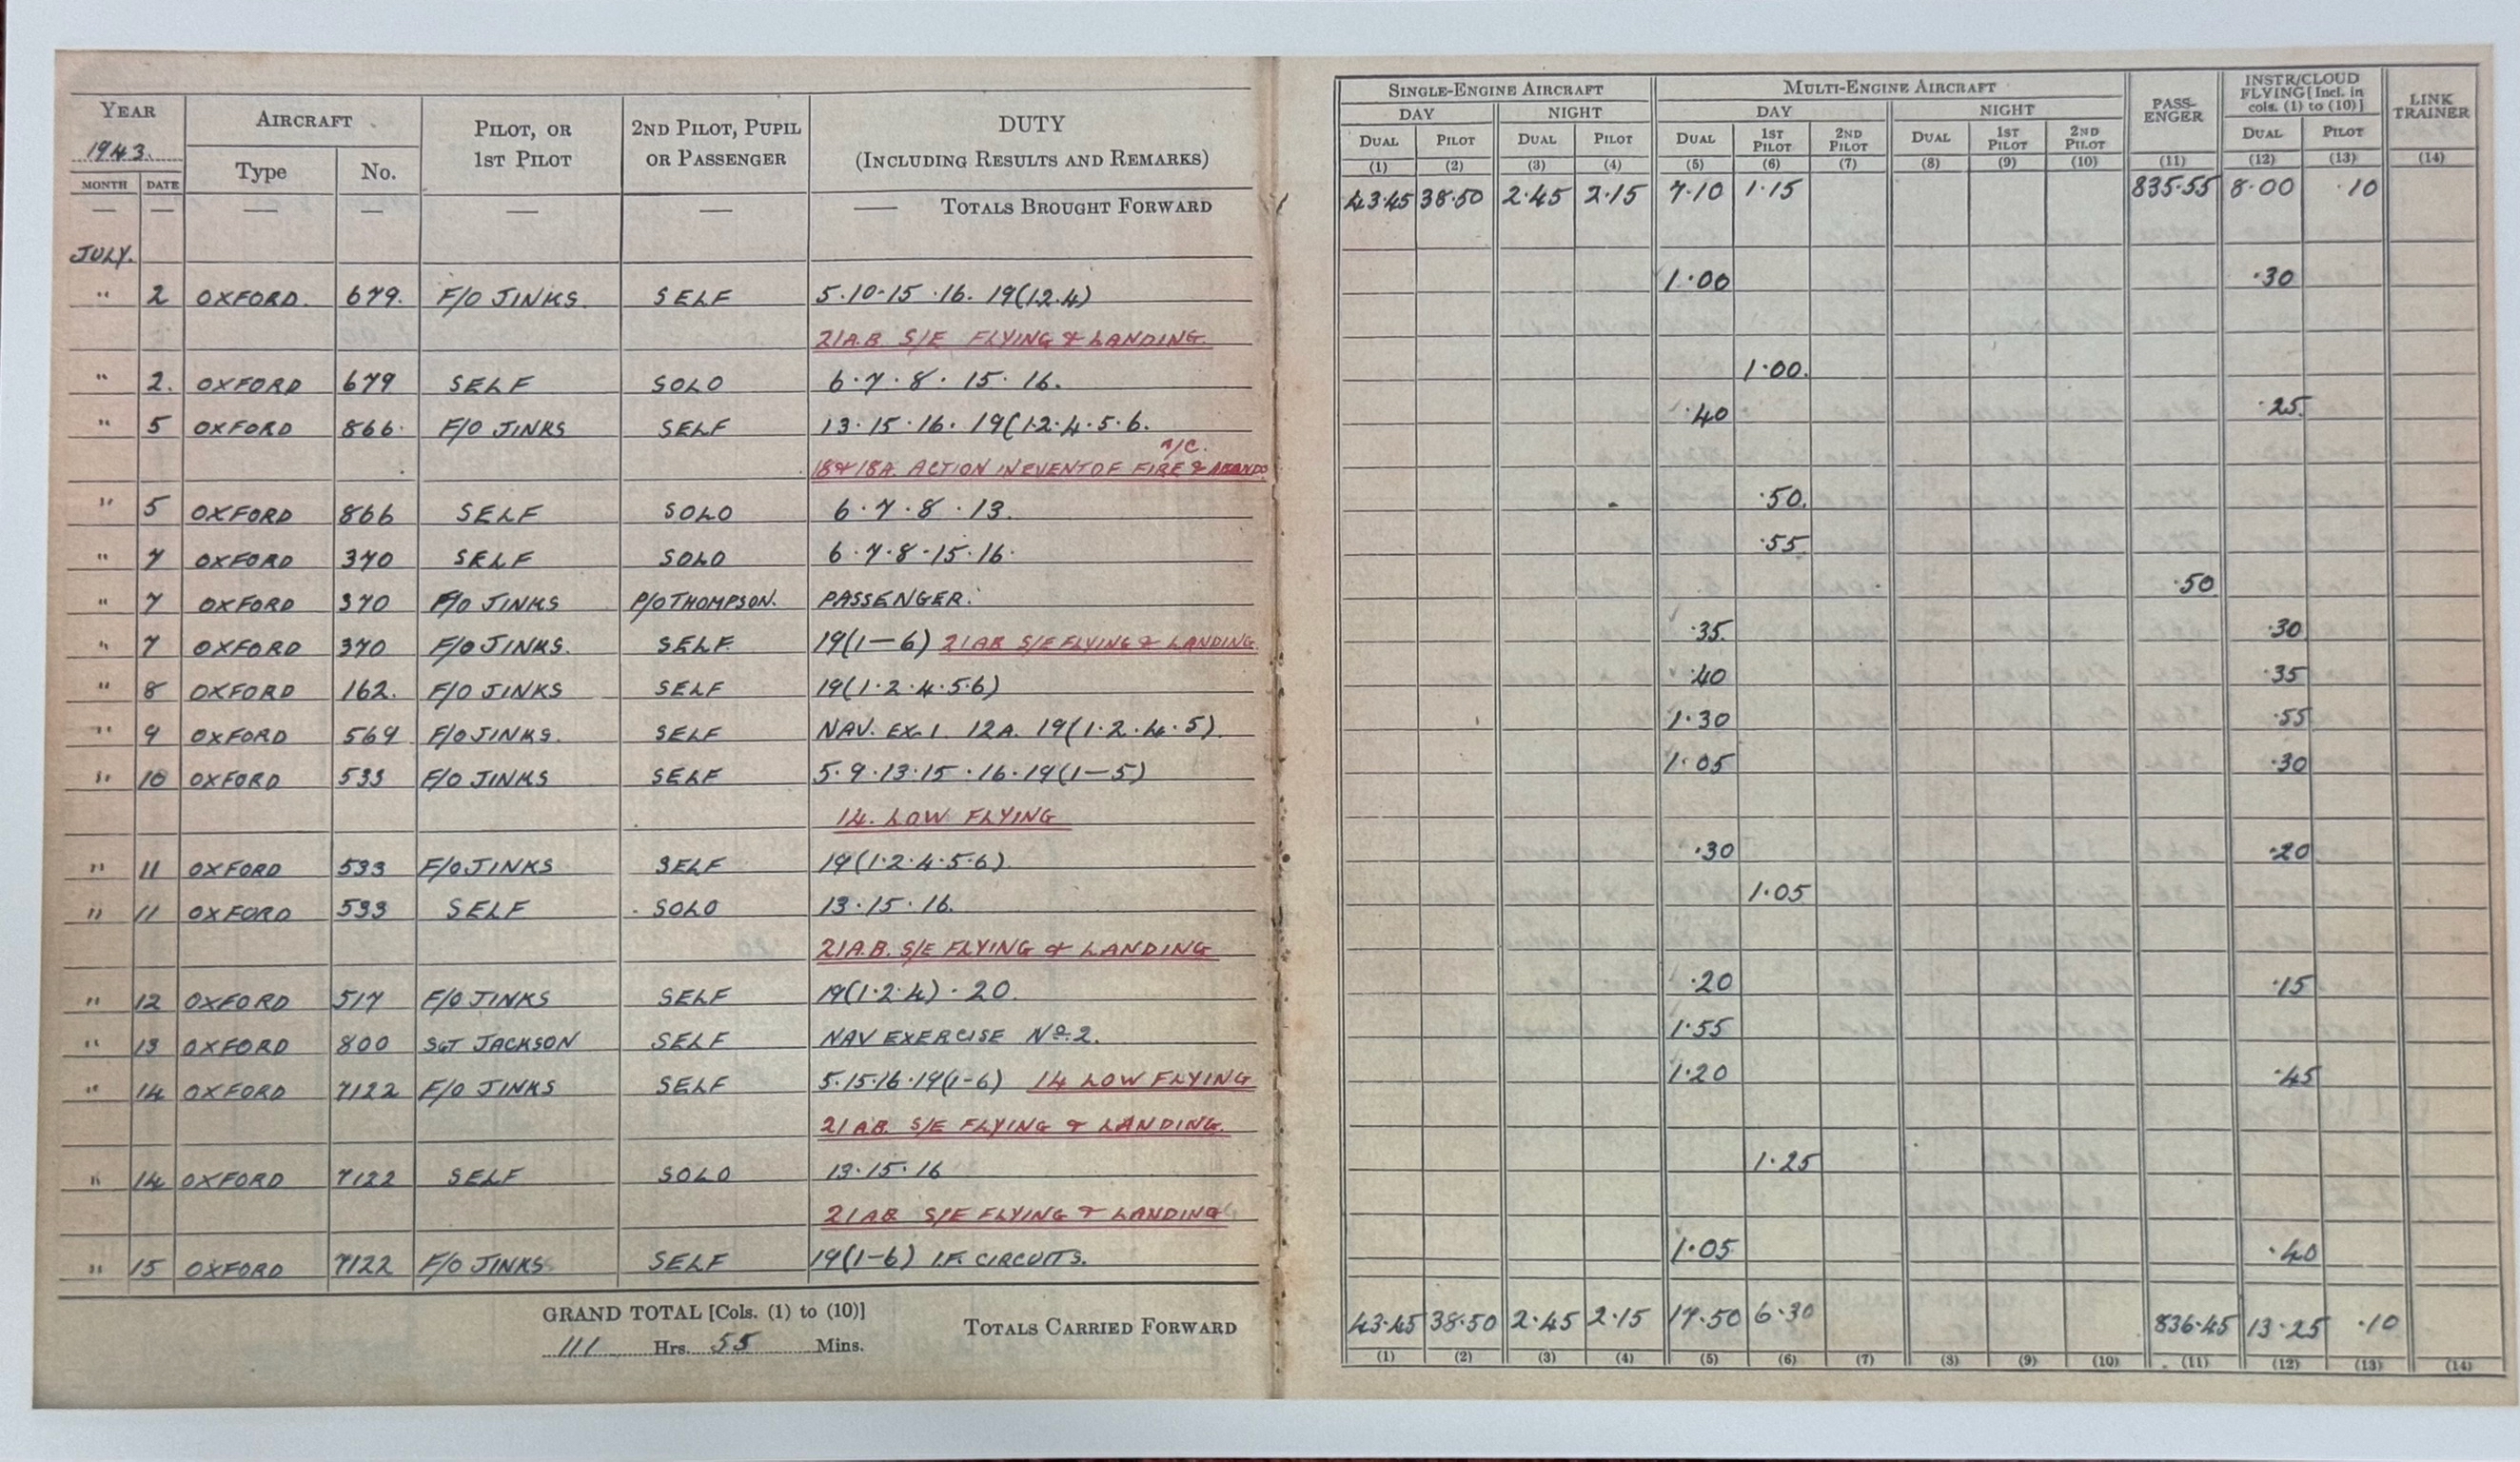 YEAR AIRCRAFT PILOT, OR 1ST PILOT 2ND PILOT, PUPIL OR PASSENGER DUTY (INCLUDING RESULTS AND REMARKS)
1943. Type No.
MONTH DATE
SINGLE-ENGINE AIRCRAFT MULTI-ENGINE AIRCRAFT PASS-ENGER INSTR/CLOUD FLYING [Incl. in cols. (1) to (10)] LINK TRAINER
DAY NIGHT DAY NIGHT
DUAL PILOT DUAL PILOT DUAL 1ST PILOT 2ND PILOT DUAL 1ST PILOT 2ND PILOT DUAL PILOT
(1) (2) (3) (4) (5) (6) (7) (8) (9) (10) (11) (12) (13) (14)
— — — — — — — TOTALS BROUGHT FORWARD 43·45 38·50 2·45 2·15 7·10 1·15 835·55 8·00 ·10
JULY.
" 2 OXFORD. 679. F/O JINKS. SELF 5·10·15·16. 19(1.2.4) 1·00 ·30
21A.B S/E FLYING & LANDING.
" 2. OXFORD 679 SELF SOLO 6·7·8·15·16. 1·00.
" 5 OXFORD 866· F/O JINKS SELF 13·15·16. 19(1·2·4·5·6. ·40 ·25.
A/C.
18&18A. ACTION IN EVENT OF FIRE & ABANDO.
" 5 OXFORD 866 SELF SOLO 6·7·8·13. ·50.
" 7 OXFORD 370 SELF SOLO 6·7·8·15·16· ·55
" 7 OXFORD 370 F/O JINKS P/O THOMPSON. PASSENGER. ·50
" 7 OXFORD 370 F/O JINKS. SELF. 19(1—6) 21AB S/E FLYING & LANDING. ·35. ·30
" 8 OXFORD 162. F/O JINKS SELF 19(1·2·4·5·6) ·40 ·35
" 9 OXFORD 569 F/O JINKS. SELF NAV. EX. 1. 12A. 19(1·2·4·5). 1·30 ·55
" 10 OXFORD 533 F/O JINKS SELF 5·9·13·15·16·19(1—5) 1·05 ·30
14. LOW FLYING
" 11 OXFORD 533 F/O JINKS SELF 19(1·2·4·5·6). ·30 ·20
" 11 OXFORD 533 SELF SOLO 13·15·16. 1·05
21A.B. S/E FLYING & LANDING
" 12 OXFORD 517 F/O JINKS SELF 19(1·2·4)·20. ·20 ·15
" 13 OXFORD 800 SGT JACKSON SELF NAV EXERCISE No. 2. 1·55
" 14 OXFORD 7122 F/O JINKS SELF 5·15·16·19(1-6) 14 LOW FLYING 1·20 ·45
21AB. S/E FLYING & LANDING.
" 14 OXFORD 7122 SELF SOLO 13·15·16 1·25
21AB S/E FLYING & LANDING
" 15 OXFORD 7122 F/O JINKS SELF 19(1-6) I.F. CIRCUITS. 1·05 ·40
GRAND TOTAL [Cols. (1) to (10)]
111 Hrs. 55 Mins.
TOTALS CARRIED FORWARD 43·45 38·50 2·45 2·15 17·50 6·30 836·45 13·25 ·10
(1) (2) (3) (4) (5) (6) (7) (8) (9) (10) (11) (12) (13) (14)